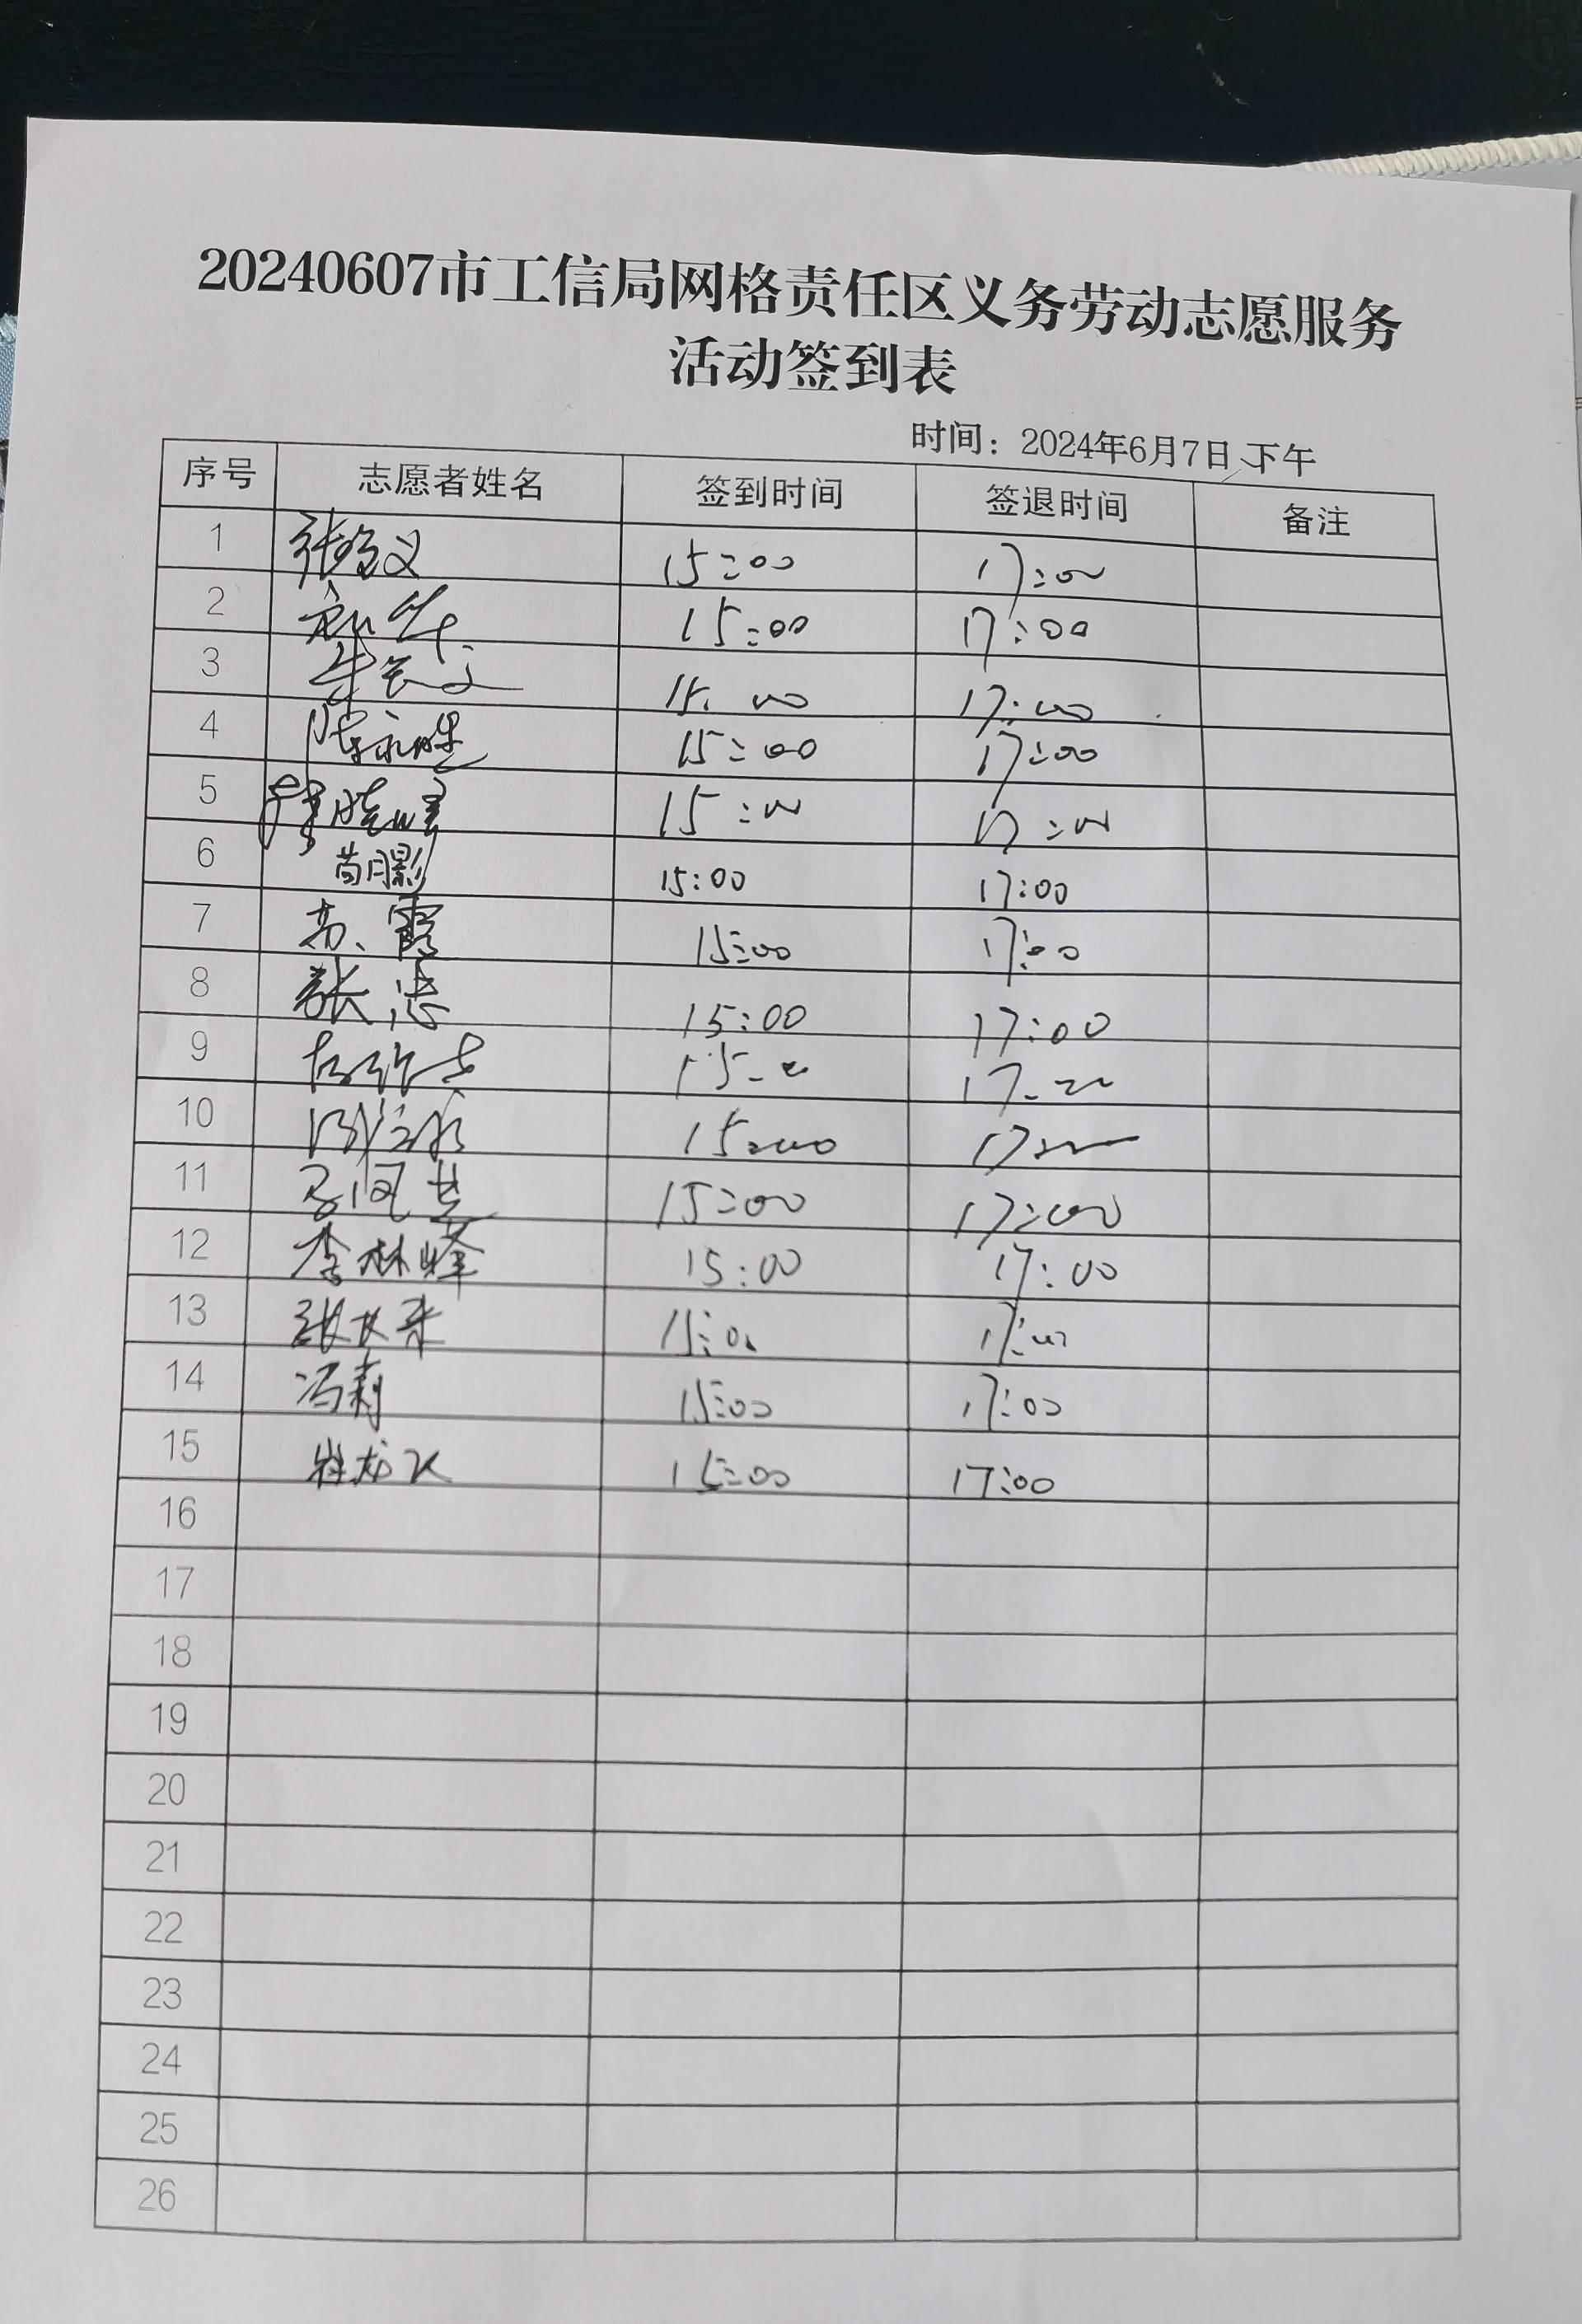 20240607市工信局网格责任区义务劳动志愿服务
活动签到表
时间：2024年6月7日下午
序号 志愿者姓名 签到时间 签退时间 备注
1 15:00 17:00
2 15:00 17:00
3 15:00 17:00
4 15:00 17:00
5 15:00 17:00
6 苗月影 15:00 17:00
7 苏霞 15:00 17:00
8 张忠 15:00 17:00
9 15:00 17:00
10 15:00 17:00
11 15:00 17:00
12 李林峰 15:00 17:00
13 15:00 17:00
14 冯莉 15:00 17:00
15 15:00 17:00
16
17
18
19
20
21
22
23
24
25
26